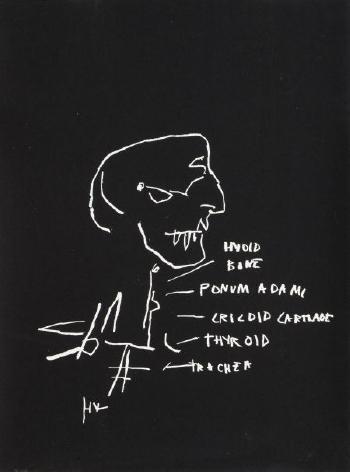 HYOID
BONE
PONUM ADAMI
CRICOID CARTILAGE
THYROID
TRACHEA
HK